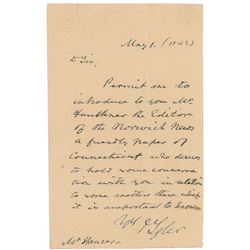 May 1. (1843)
Dr Sir,
Permit me to
introduce to you Mr
Faulkner the Editor
of the Norwich News
a friendly paper of
Connecticut who desires
to hold some conversa
tion with you in relation
to some matters there which
it is important to
J Tyler
Mr Spencer